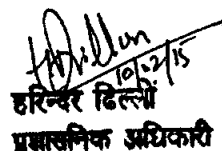 10/02/15
हरिन्दर ढिल्लों
प्रशासनिक अधिकारी